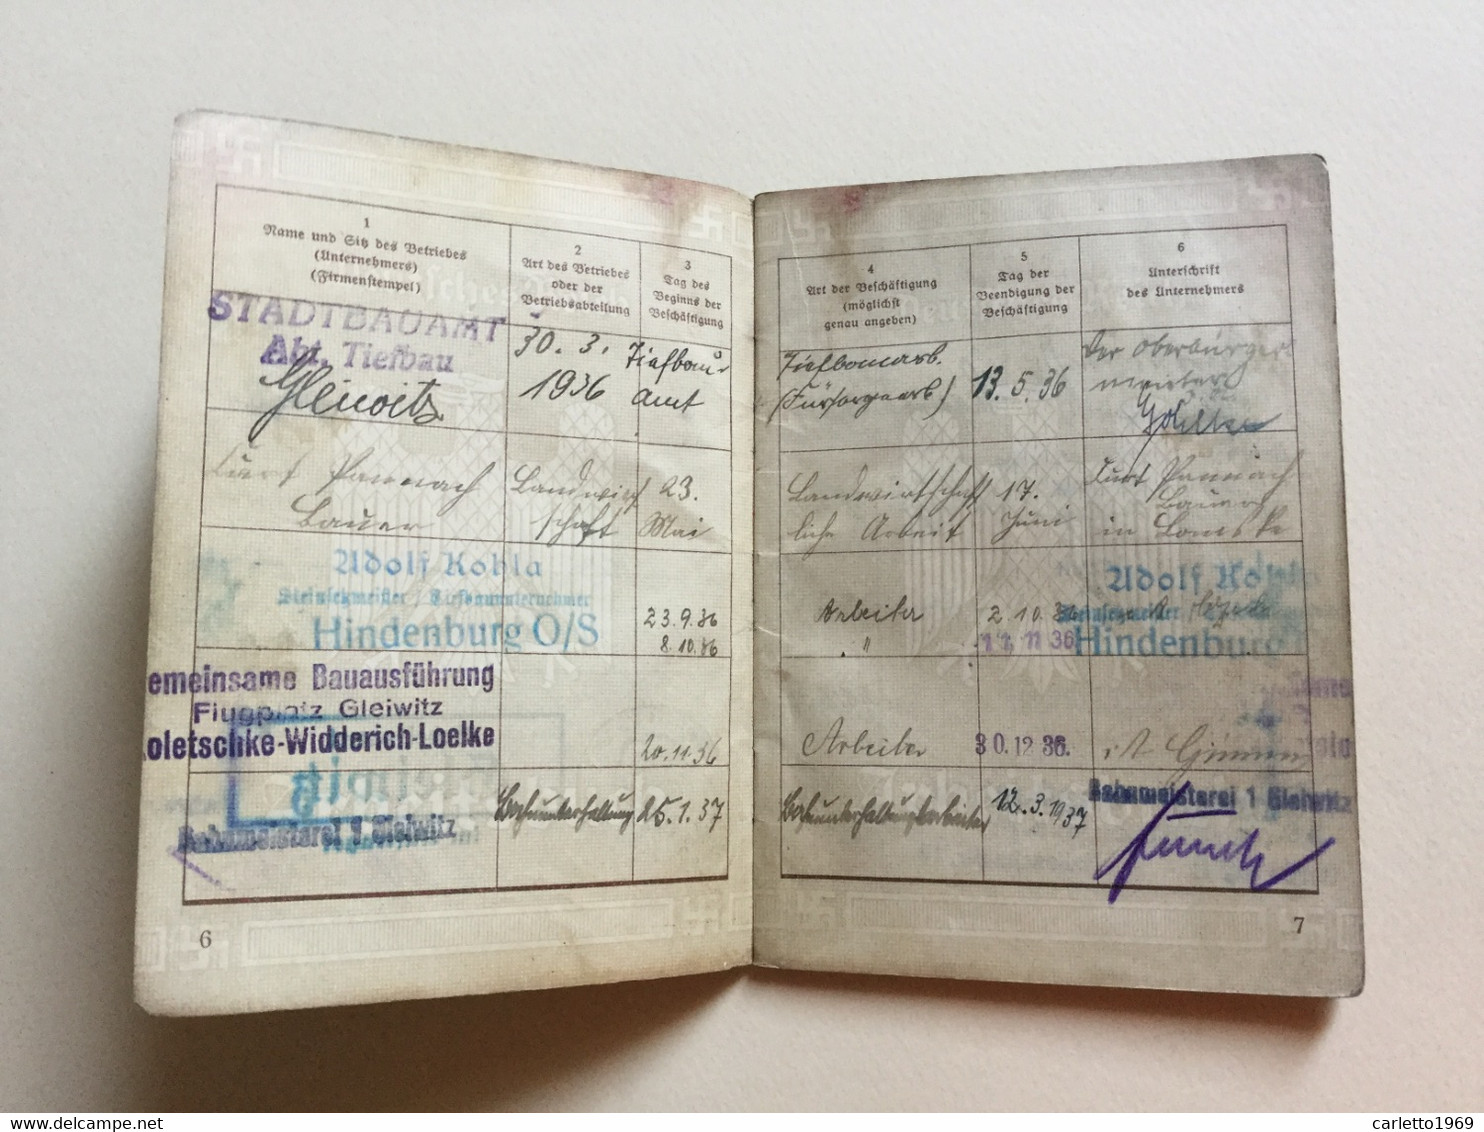 1
Name und Sitz des Betriebes
(Unternehmers)
(Firmenstempel)
2
Art des Betriebes
oder der
Betriebsabteilung
3
Tag des
Beginns der
Beschäftigung
STADTBAUAMT
Abt. Tiefbau
Gleiwitz
30. 3.
1936
Tiefbau-
amt
Kurt Pannach
Bauer
Landwirt
schaft
23.
Mai
Adolf Kohla
Steinsetzmeister / Tiefbauunternehmer
Hindenburg O/S
23.9.36
8.10.36
emeinsame Bauausführung
Flugplatz Gleiwitz
oletschke-Widderich-Loelke
20.11.36
Bahnmeisterei 1 Gleiwitz
Bahnunterhaltung
25.1.37
6
4
Art der Beschäftigung
(möglichst
genau angeben)
5
Tag der
Beendigung der
Beschäftigung
6
Unterschrift
des Unternehmers
Tiefbauarb.
(Fürsorgearb.)
13.5.36
Der Oberbürger
meister
Landwirtschaft
liche Arbeit
17.
Juni
Kurt Pannach
Bauer
in Lomske
Arbeiter
"
2.10.36
11.11.36
Adolf Ko
Steinsetzmeister
Hindenburg
Arbeiter
30.12.36.
Bahnunterhaltungsarbeiter
12.3.1937
Bahnmeisterei 1 Gleiwitz
7
carletto1969